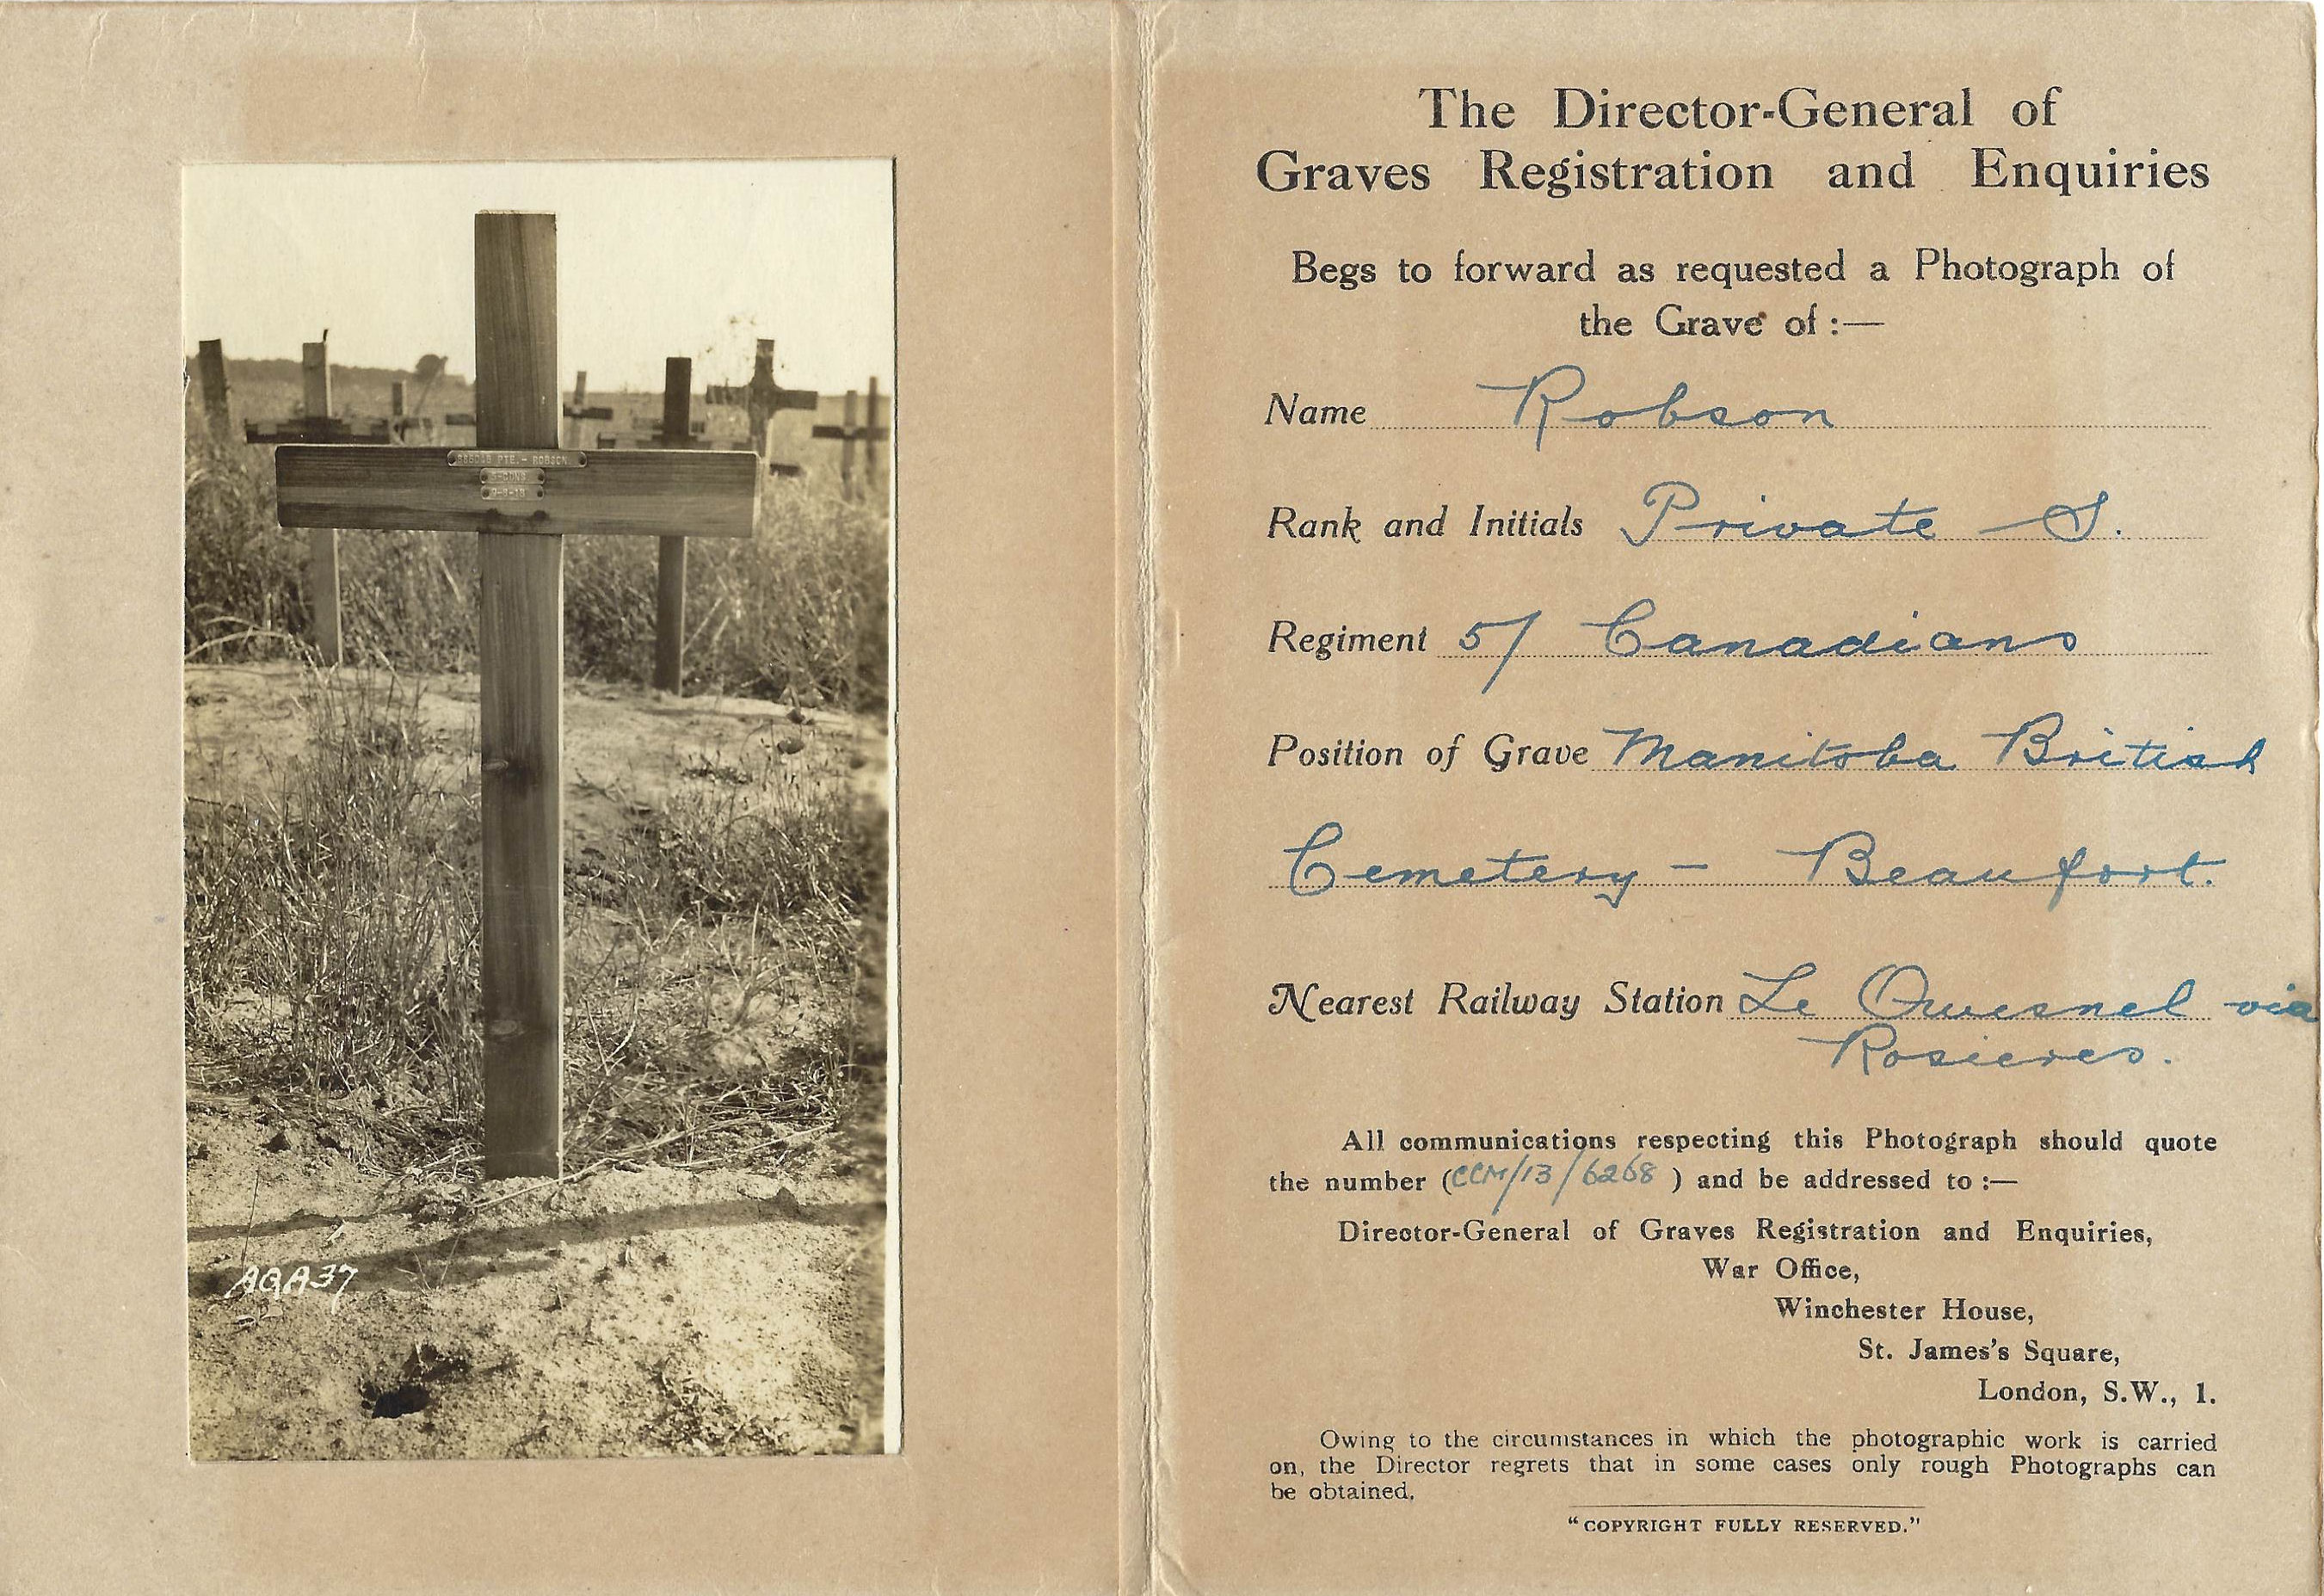 PTE. - ROBSON.
AGA37
The Director-General of
Graves Registration and Enquiries
Begs to forward as requested a Photograph of
the Grave of :—
Name Robson
Rank and Initials Private S.
Regiment 5/ Canadians
Position of Grave Manitoba British
Cemetery - Beaufort.
Nearest Railway Station Le Quesnel via
Rosieres.
All communications respecting this Photograph should quote
the number (CCM/13/6268) and be addressed to :—
Director-General of Graves Registration and Enquiries,
War Office,
Winchester House,
St. James's Square,
London, S.W., 1.
Owing to the circumstances in which the photographic work is carried
on, the Director regrets that in some cases only rough Photographs can
be obtained.
"COPYRIGHT FULLY RESERVED."